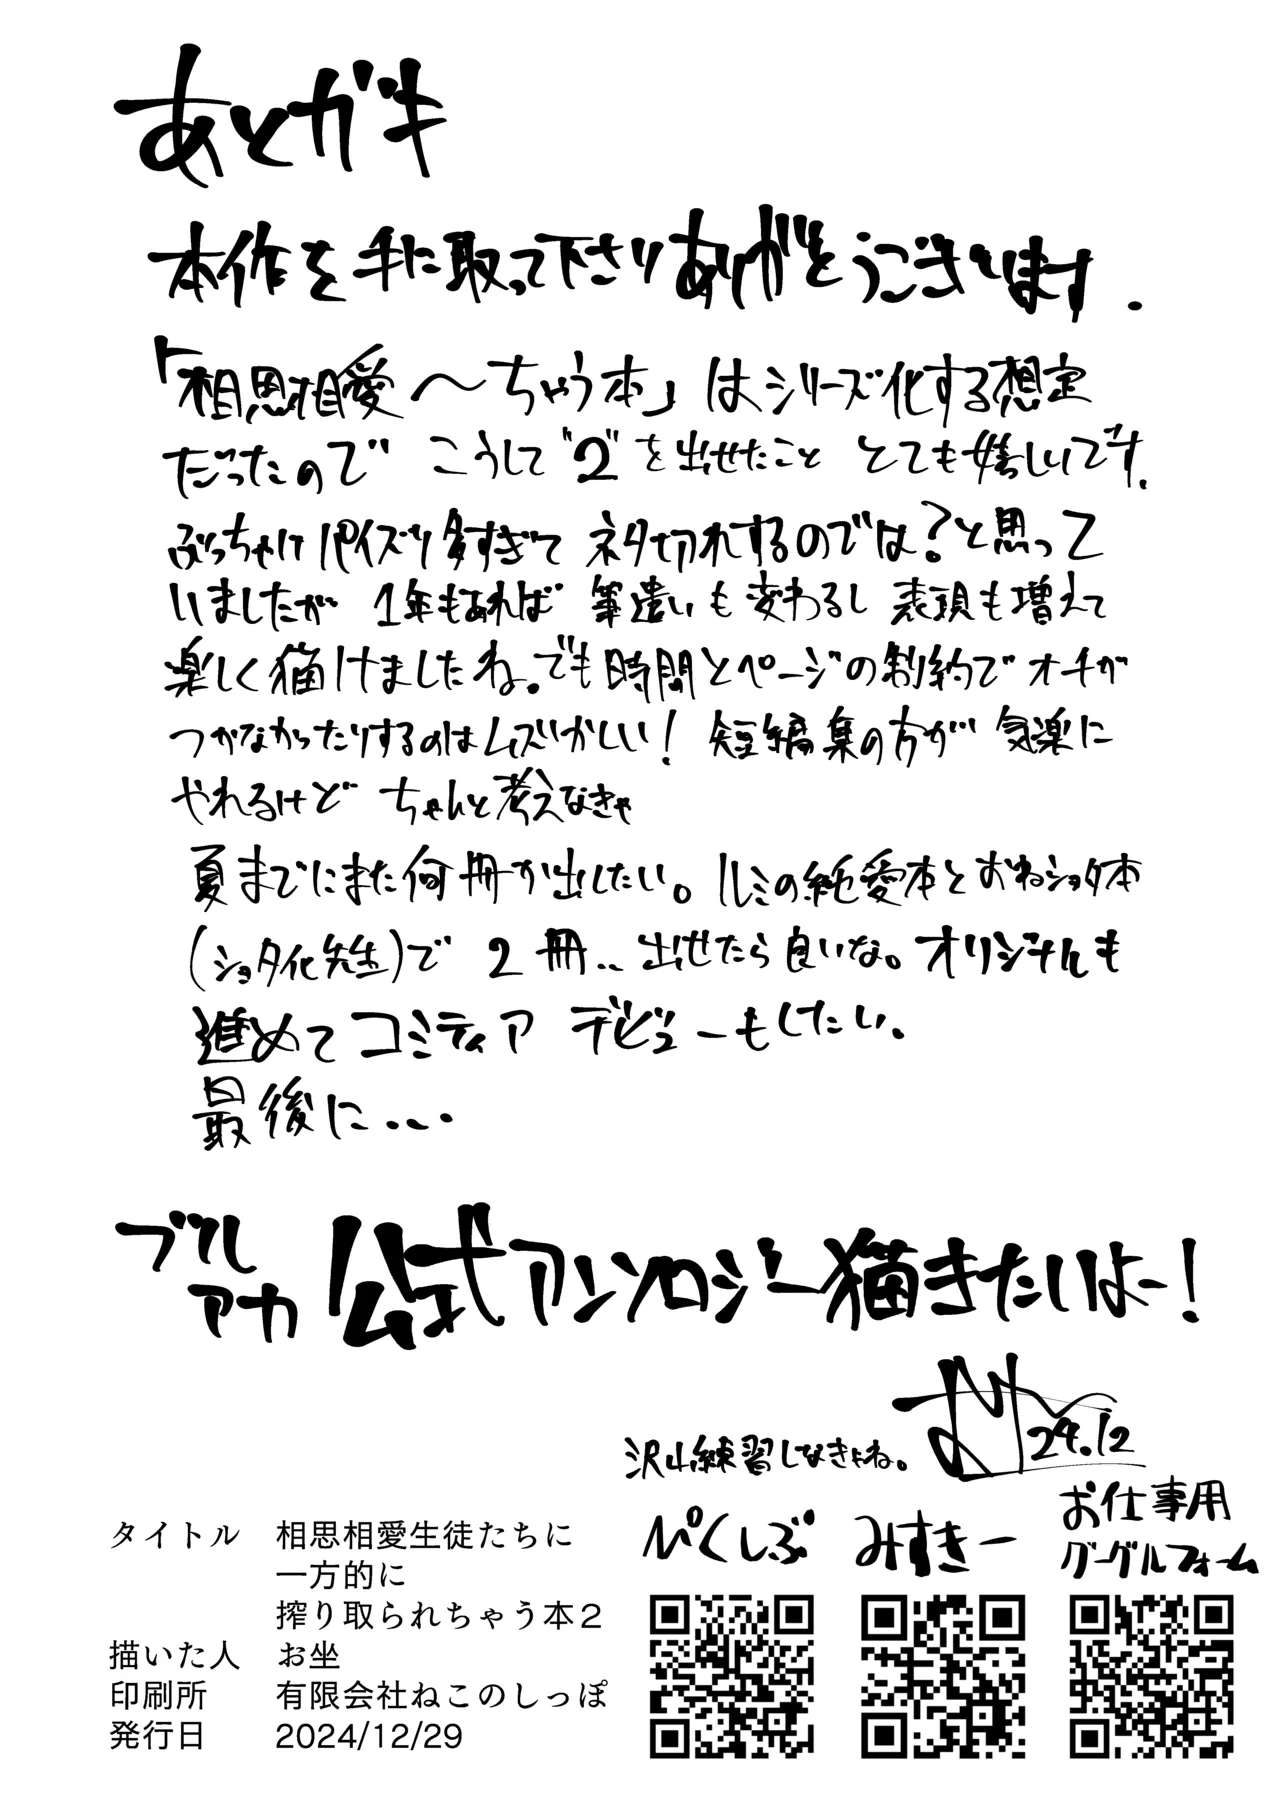 あとがき
本作を手に取って下さりありがとうございます.
「相思相愛～ちゃう本」はシリーズ化する想定
だったので こうして"2"を出せたこと とても嬉しいです.
ぶっちゃけパイズリ多すぎて ネタ切れするのでは?と思って
いましたが 1年もあれば 筆遣いも変わるし 表現も増えて
楽しく描けましたね。でも時間とページの制約でオチが
つかなかったりするのはムズかしい! 短編集の方が 気楽に
やれるけど ちゃんと考えなきゃ
夏までにまた何冊か出したい。ルミの純愛本とおねショタ本
(ショタ化先生)で 2冊..出せたら良いな。オリジナルも
進めてコミティア デビューもしたい。
最後に...
ブル
アカ 公式アンソロジー描きたいよー!
24.12
沢山練習しなきゃね。
タイトル 相思相愛生徒たちに
一方的に
搾り取られちゃう本2
描いた人 お坐
印刷所 有限会社ねこのしっぽ
発行日 2024/12/29
ぴくしぶ
みすきー
お仕事用
グーグルフォーム